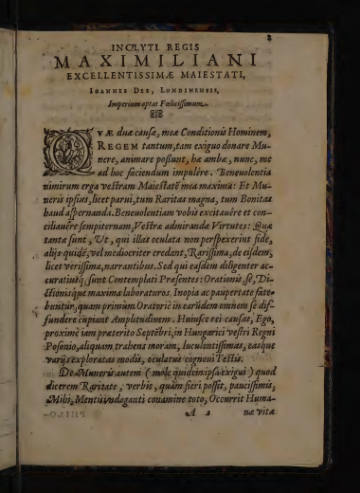 INCLYTI REGIS
MAXIMILIANI
EXCELLENTISSIMÆ MAIESTATI,
IOANNES DEE, LONDINENSIS,
Imperium optat Fœlicissimum.
QVÆ duæ causæ, meæ Conditionis Hominem,
REGEM tantum, tam exiguo donare Mu-
nere, animare possunt, hæ ambæ, nunc, me
ad hoc faciendum impulêre. Beneuolentia
nimirum erga vestram Maiestatē mea maxima: Et Mu-
neris ipsius, licet parui, tum Raritas magna, tum Bonitas
haud aspernanda. Beneuolentiam vobis excitauêre et con-
ciliauêre sempiternam, Vestræ admirandæ Virtutes: Quæ
tantæ sunt, Vt, qui illas oculata non perspexerint fide,
alijs quidē, vel mediocriter credant, Rarissima, de eisdem,
licet verissima, narrantibus. Sed qui easdem diligenter ac-
curatiusq́; sunt Contemplati Præsentes: Orationis, sē, Di-
ctionisque maxima laboraturos Inopia ac paupertate fate-
buntur, quam primum Oratoriè in earūdem omnem se dif-
fundere cupiant Amplitudinem. Huiusce rei causas, Ego,
proximè iam præterito Septēbri, in Hungarici vestri Regni
Posonio, aliquam trahens moram, luculentissimas, easque
varijs exploratas modis, oculatus cognoui Testis.
De Muneris autem (mole quidem ipsa exigui) quod
dicerem Raritate, verbis, quàm fieri possit, paucissimis,
Mihi, Mentis indaganti conamine toto, Occurrit Huma-
A 2 næ vitæ